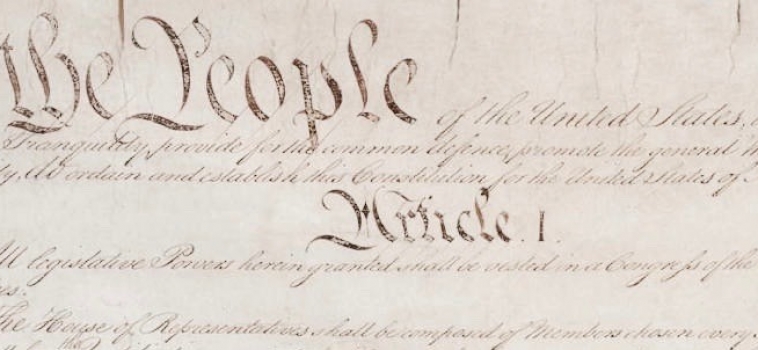 the People of the United States,
Tranquility, provide for the common defence, promote the general
do ordain and establish this Constitution for the United States of
Article. I.
legislative Powers herein granted shall be vested in a Congress of the
The House of Representatives shall be composed of Members chosen every